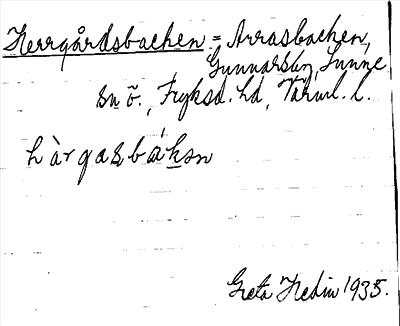 Herrgårdsbacken = Arrasbacken,
Gunnarsby, Sunne
sn ö., Fryksd. hd, Värml. l.
hàrgasbáksn
Greta Hedin 1935.